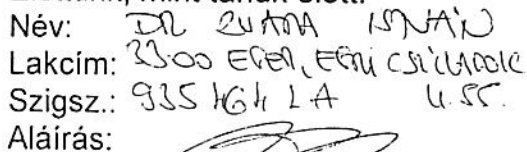 Név: DR ZUTARA ISTVÁN
Lakcím: 3300 EGER, EGRI CSILLAGOK
Szigsz.: 935464 LA U. 55.
Aláírás: